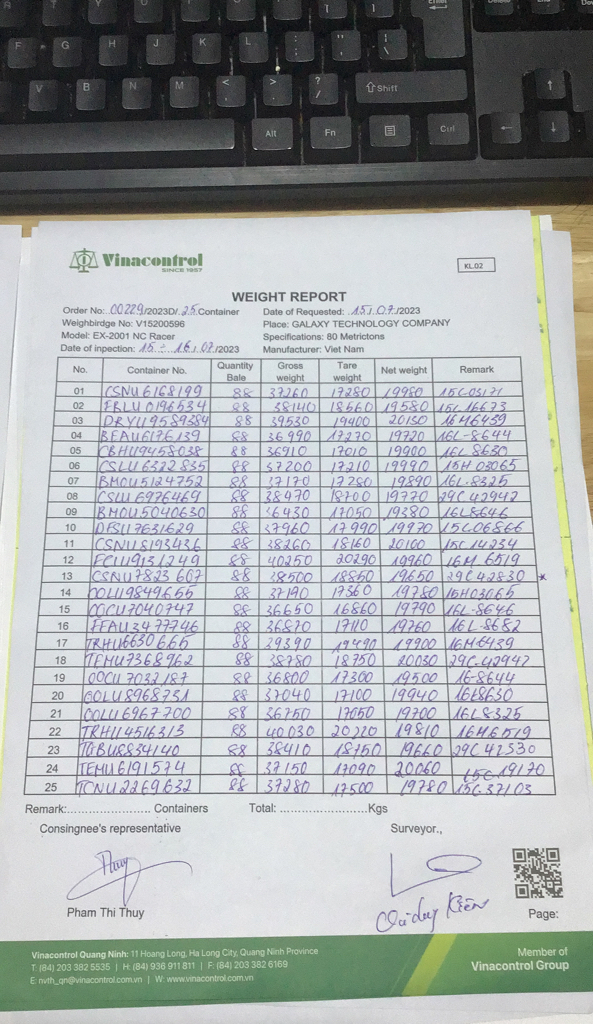 Enter
Delete
F G H J K L : ; " '
V B N M < , > . ? / ⇧Shift ↑
Alt Fn Ctrl ← ↓
Vinacontrol
SINCE 1957
KL.02
WEIGHT REPORT
Order No: 00229/2023D/.25.Container Date of Requested: 15/07/2023
Weighbirdge No: V15200596 Place: GALAXY TECHNOLOGY COMPANY
Model: EX-2001 NC Racer Specifications: 80 Metrictons
Date of inpection: 15 - 16/07/2023 Manufacturer: Viet Nam
No. Container No. Quantity Bale Gross weight Tare weight Net weight Remark
01 CSNU6168199 88 37260 17280 19980 15C-03171
02 FBLU0196534 88 38140 18560 19580 15C 16673
03 DRYU9589384 88 39530 19400 20130 16M6439
04 BEAU6176139 88 36990 17270 19720 16L-8644
05 CBHU9458038 88 36910 17010 19900 16L 8630
06 CSLU6322835 88 37200 17210 19990 15H 03065
07 BMOU5124752 88 37170 17280 19890 16L-8325
08 CSLU6976469 88 38470 18700 19770 29C42942
09 BMOU5040630 88 36430 17050 19380 16L8646
10 DFSU7631629 88 37960 17990 19970 15C06866
11 CSNU8193436 88 38260 18160 20100 15C 14234
12 FCIU9131249 88 40250 20290 19960 16M 6519
13 CSNU7823607 88 38500 18850 19650 29C42830 *
14 OOLU9849655 88 37190 17360 19780 15H03065
15 OOCU7040747 88 36650 16860 19790 16L-8646
16 FFAU3477746 88 36870 17110 19760 16L-8682
17 TRHU6630665 88 39390 19490 19900 16M6439
18 TEMU7368962 88 38780 18750 20030 29C-42942
19 OOCU7032187 88 36800 17300 19500 16-8644
20 OOLU8968731 88 37040 17100 19940 16L8630
21 OOLU6967700 88 36750 17050 19700 16L8325
22 TRHU4516313 88 40030 20220 19810 16M6519
23 TGBU8834140 88 38410 18750 19660 29C42530
24 TEMU6191574 88 37150 17090 20060 15C 19170
25 TCNU2269632 88 37280 17500 19780 15C-37103
Remark:........................ Containers Total: .........................Kgs
Consingnee's representative Surveyor.,
Thuy
Pham Thi Thuy Page:
Vinacontrol Quang Ninh: 11 Hoang Long, Ha Long City, Quang Ninh Province
T: (84) 203 382 5535 | H: (84) 936 911 811 | F: (84) 203 382 6169
E: nvth_qn@vinacontrol.com.vn | W: www.vinacontrol.com.vn
Member of
Vinacontrol Group